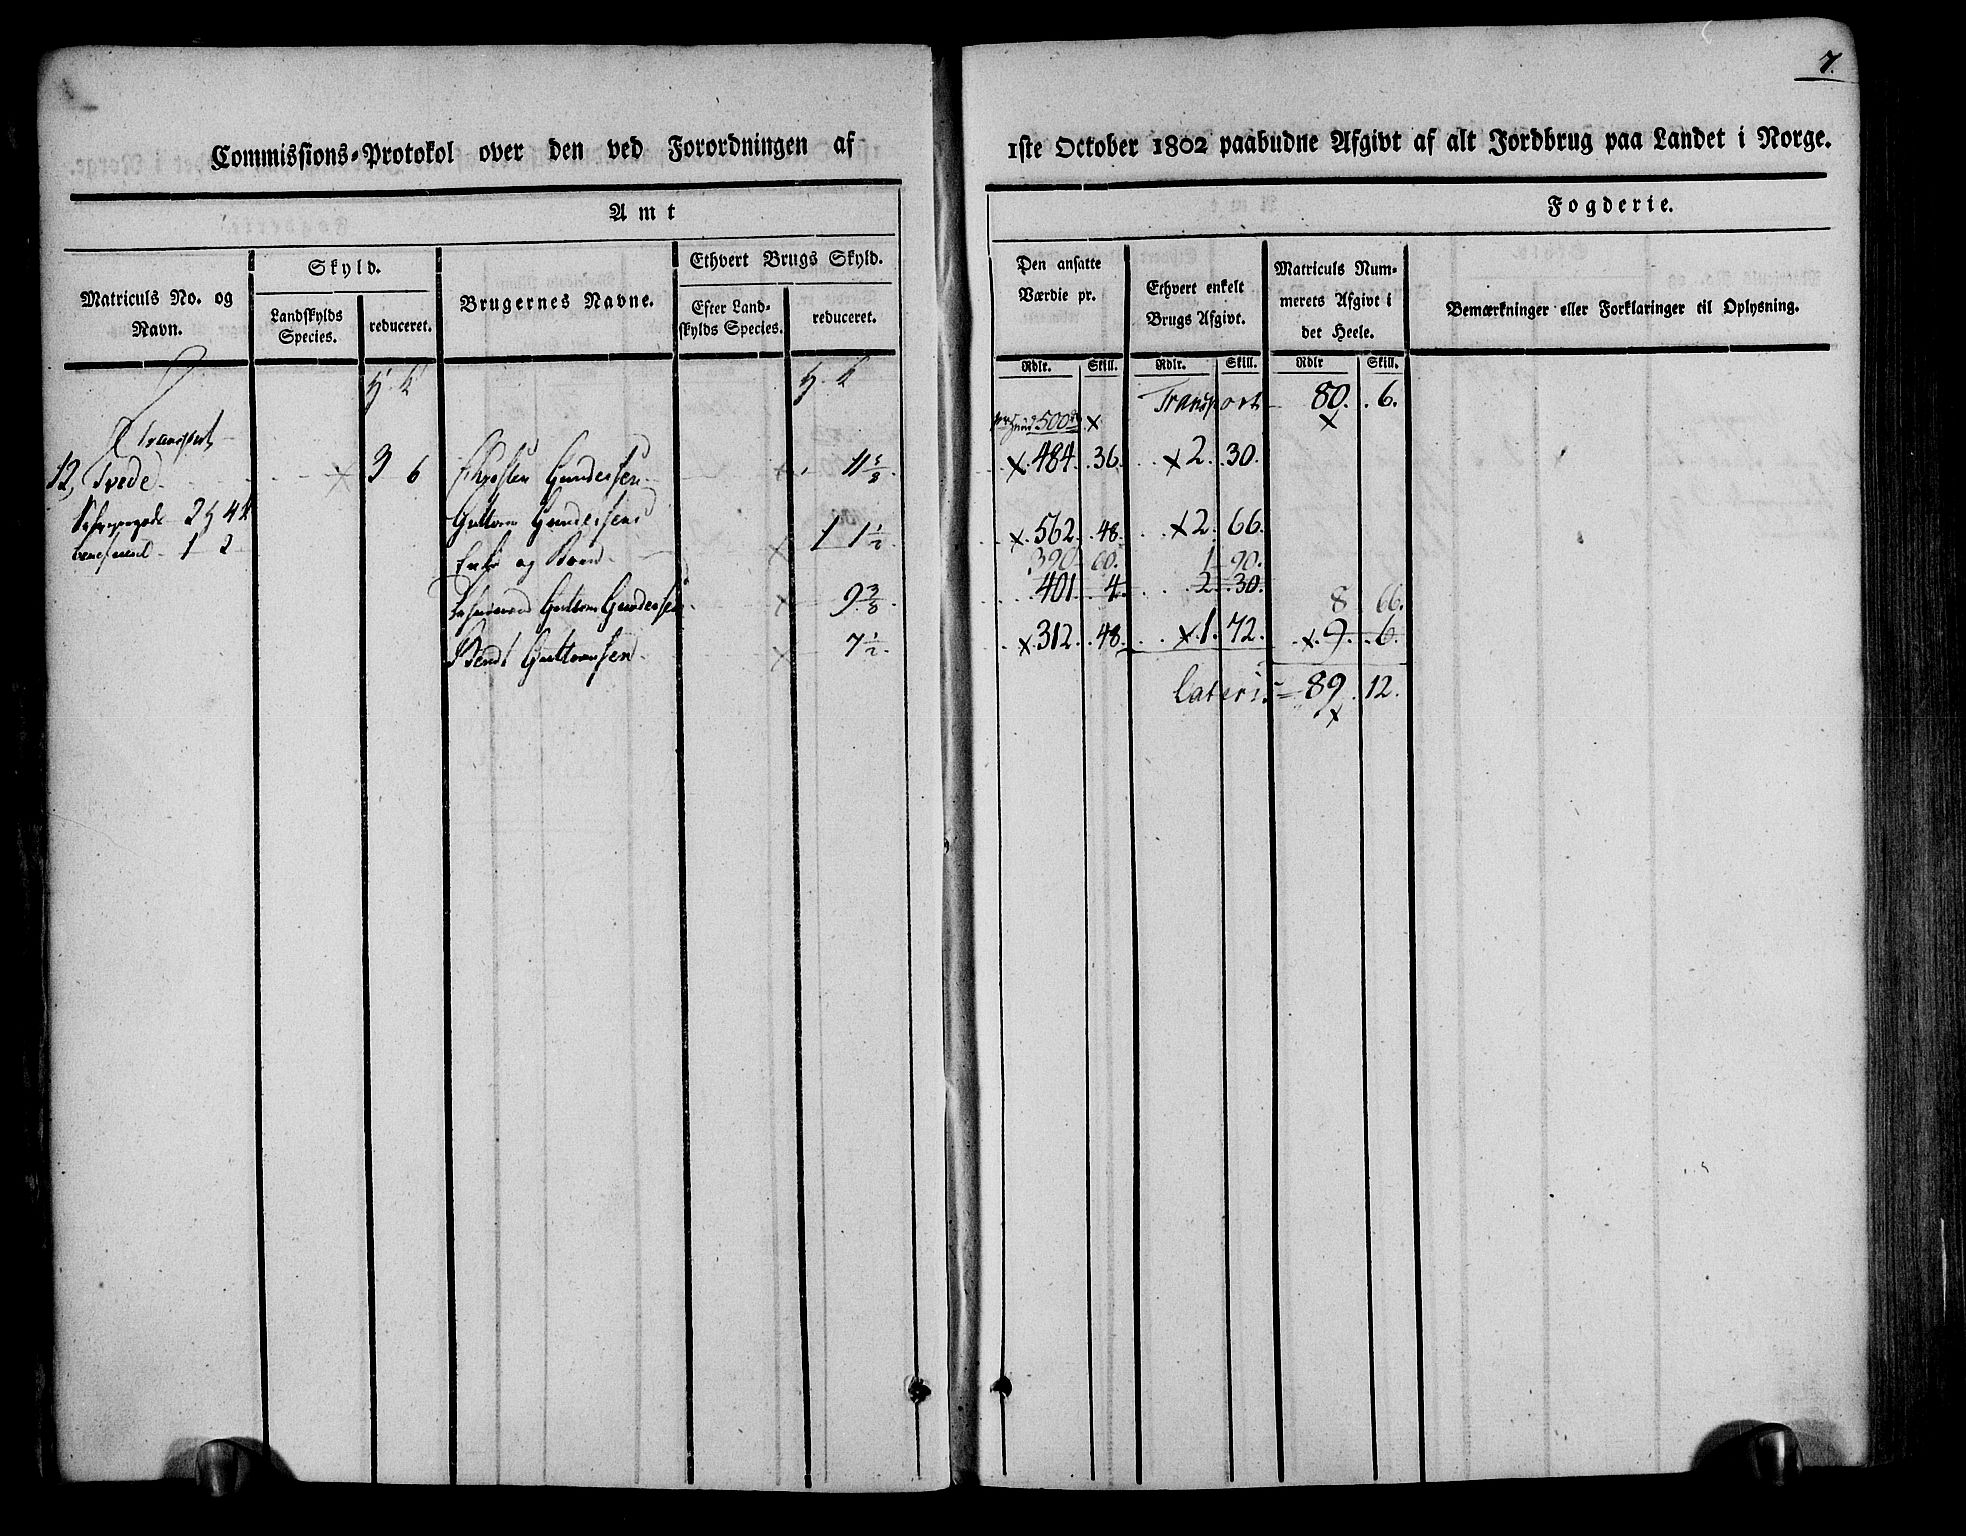 7.
Commissions-Protokol over den ved Forordningen af 1ste October 1802 paabudne Afgivt af alt Jordbrug paa Landet i Norge.
Amt
Fogderie.
Matriculs No. og Navn.
Skyld.
Landskylds Species.
reduceret.
Brugernes Navne.
Ethvert Brugs Skyld.
Efter Landskylds Species.
reduceret.
Den ansatte Værdie pr.
Rdlr. Skill.
Ethvert enkelt Brugs Afgivt.
Rdlr. Skill.
Matriculs Nummerets Afgivt i det Heele.
Rdlr Skill.
Bemærkninger eller Forklaringer til Oplysning.
Transport
Transport 80. 6.
500
12, Tvede 3 6 Christen Gundersen 11 5/8 484. 36. 2. 30.
Guttorm Gundersens
Enke og Børn 1 1 1/2 562. 48. 2. 66.
390 60. 1 90.
Guttorm Gundersen 9 3/8 401. 4. 2. 30. 8 66.
Bendt Guttormsen 7 1/2 312. 48. 1. 72. 9. 6.
Lateris 89. 12.